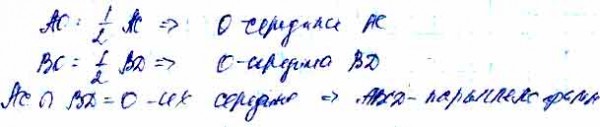 AO = 1/2 AC => O-середина AC
BO = 1/2 BD => O-середина BD
AC ∩ BD = O-их середина => ABCD-параллелограмм